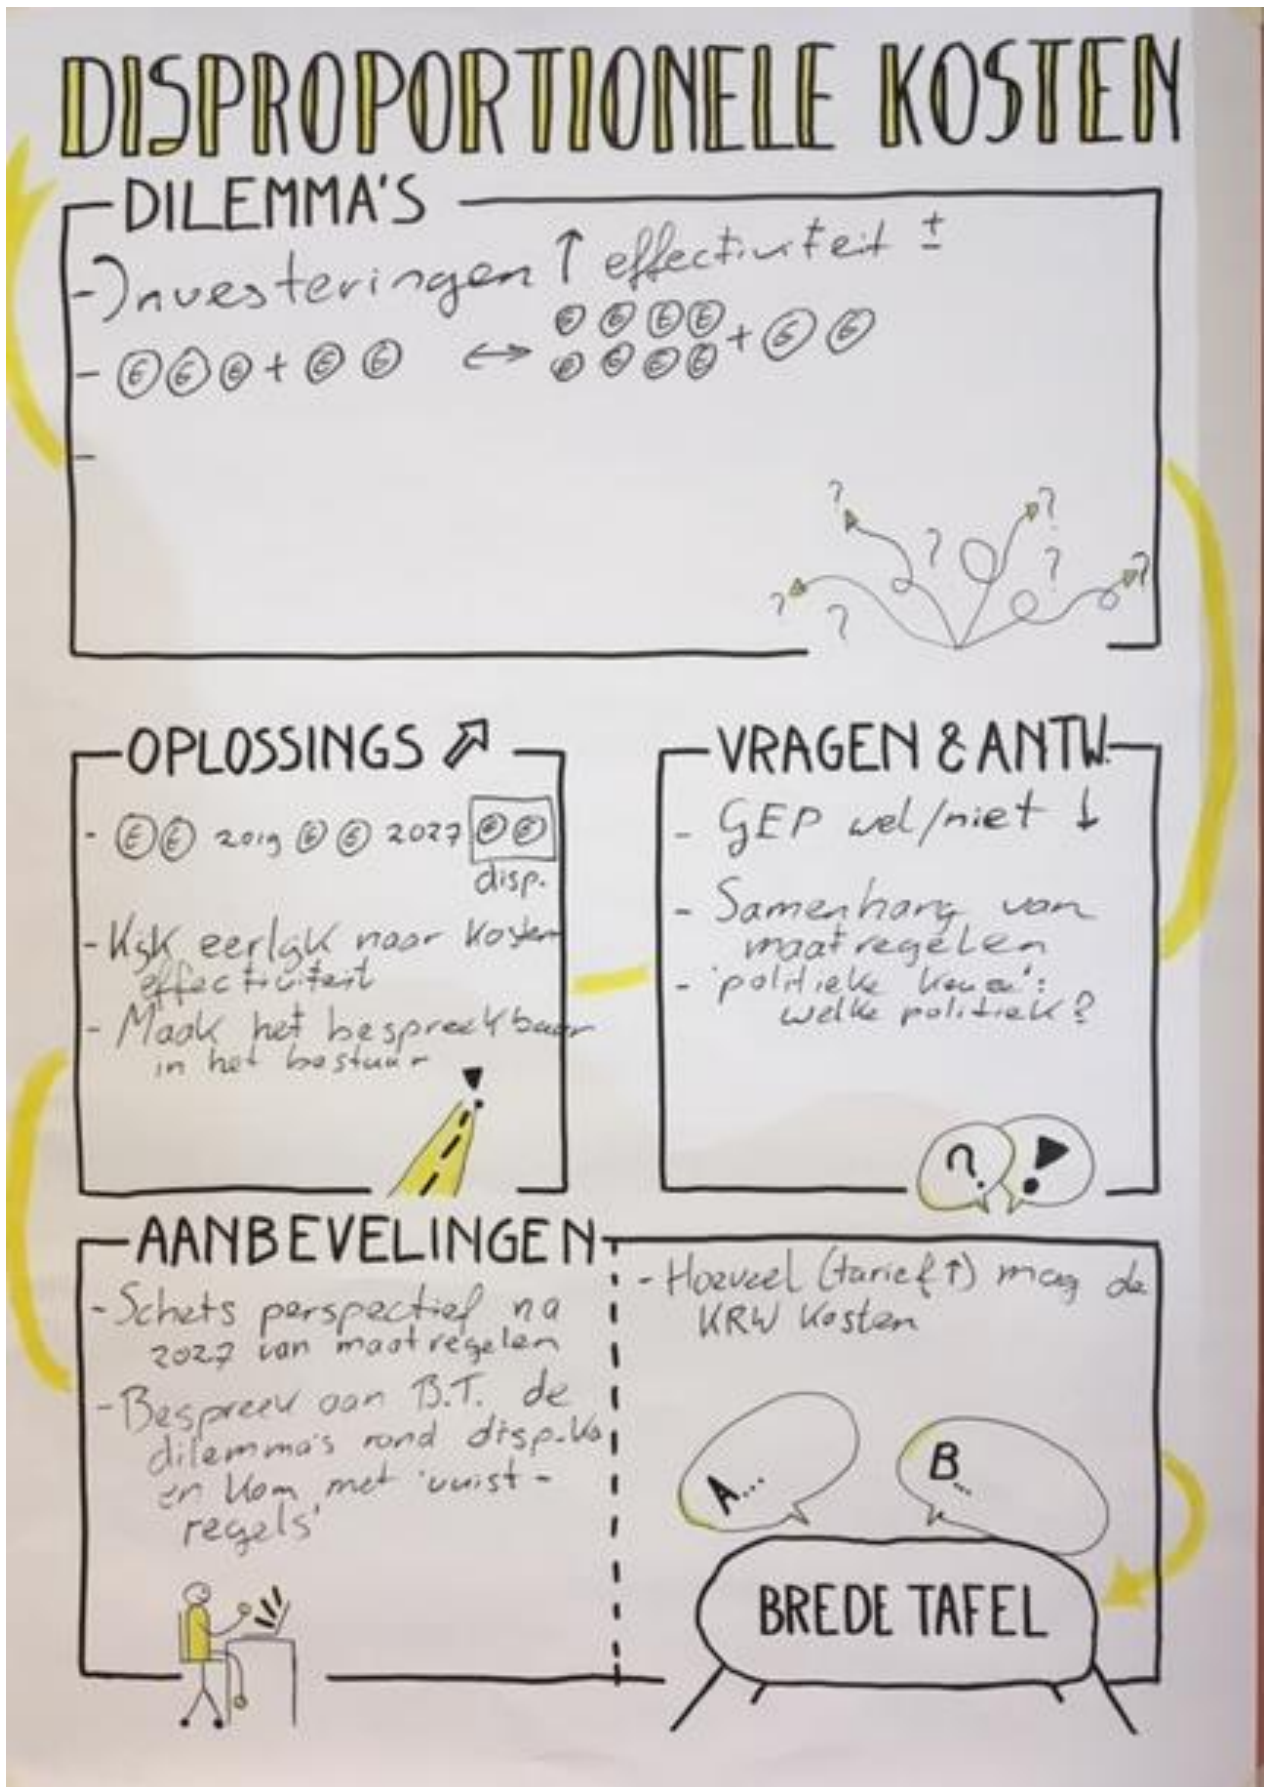 DISPROPORTIONELE KOSTEN
DILEMMA'S
- Investeringen ↑ effectiviteit ±
€ € € €
- € € € + € € ↔ € € € € + € €
-
? ? ? ? ? ? ?
OPLOSSINGS ⇗
- € € 2019 € € 2027 € €
disp.
- Kijk eerlijk naar kosten
effectiviteit
- Maak het bespreekbaar
in het bestuur
!
VRAGEN & ANTW.
- GEP wel/niet ↓
- Samenhang van
maatregelen
- 'politieke keuze':
welke politiek?
? !
AANBEVELINGEN
- Schets perspectief na
2027 van maatregelen
- Bespreek aan B.T. de
dilemma's rond disp. ko
en kom met 'vuist-
regels'
- Hoeveel (tarief ↑) mag de
KRW kosten
A...
B...
BREDE TAFEL